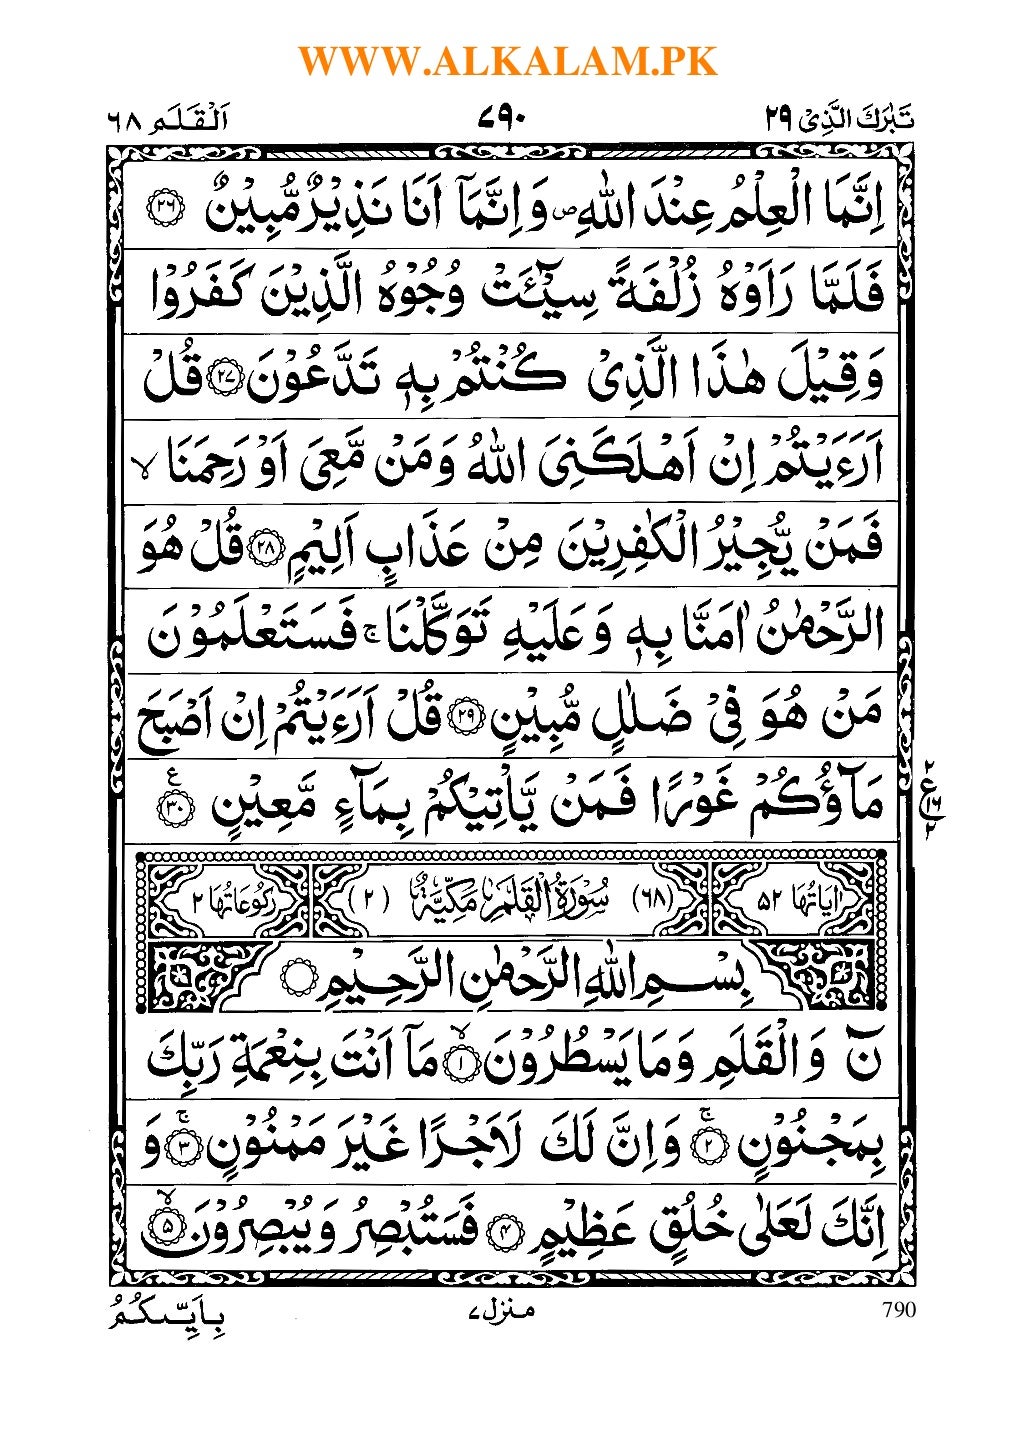 WWW.ALKALAM.PK
تَبٰرَكَ الَّذِیْ ۲۹
۷۹۰
اَلْقَلَم ۶۸
اِنَّمَا الْعِلْمُ عِنْدَ اللّٰهِ ۪ وَ اِنَّمَاۤ اَنَا نَذِیْرٌ مُّبِیْنٌ ۲۶
فَلَمَّا رَاَوْهُ زُلْفَةً سِیْٓـَٔتْ وُجُوْهُ الَّذِیْنَ كَفَرُوْا
وَ قِیْلَ هٰذَا الَّذِیْ كُنْتُمْ بِهٖ تَدَّعُوْنَ ۲۷ قُلْ
اَرَءَیْتُمْ اِنْ اَهْلَكَنِیَ اللّٰهُ وَ مَنْ مَّعِیَ اَوْ رَحِمَنَا ۙ
فَمَنْ یُّجِیْرُ الْكٰفِرِیْنَ مِنْ عَذَابٍ اَلِیْمٍ ۲۸ قُلْ هُوَ
الرَّحْمٰنُ اٰمَنَّا بِهٖ وَ عَلَیْهِ تَوَكَّلْنَا ۚ فَسَتَعْلَمُوْنَ
مَنْ هُوَ فِیْ ضَلٰلٍ مُّبِیْنٍ ۲۹ قُلْ اَرَءَیْتُمْ اِنْ اَصْبَحَ
مَآؤُكُمْ غَوْرًا فَمَنْ یَّاْتِیْكُمْ بِمَآءٍ مَّعِیْنٍ ۳۰ ع
۲
ع ۱۶
۲
اٰیَاتُهَا ۵۲ (۶۸) سُوْرَةُ الْقَلَمِ مَكِّیَّةٌ (۲) رُكُوْعَاتُهَا ۲
بِسْمِ اللّٰهِ الرَّحْمٰنِ الرَّحِیْمِ
نٓ وَ الْقَلَمِ وَ مَا یَسْطُرُوْنَ ۙ ۱ مَاۤ اَنْتَ بِنِعْمَةِ رَبِّكَ
بِمَجْنُوْنٍ ۚ ۲ وَ اِنَّ لَكَ لَاَجْرًا غَیْرَ مَمْنُوْنٍ ۚ ۳ وَ
اِنَّكَ لَعَلٰی خُلُقٍ عَظِیْمٍ ۴ فَسَتُبْصِرُ وَ یُبْصِرُوْنَ ۙ ۵
790
منزل ۷
بِاَیِّىكُمُ